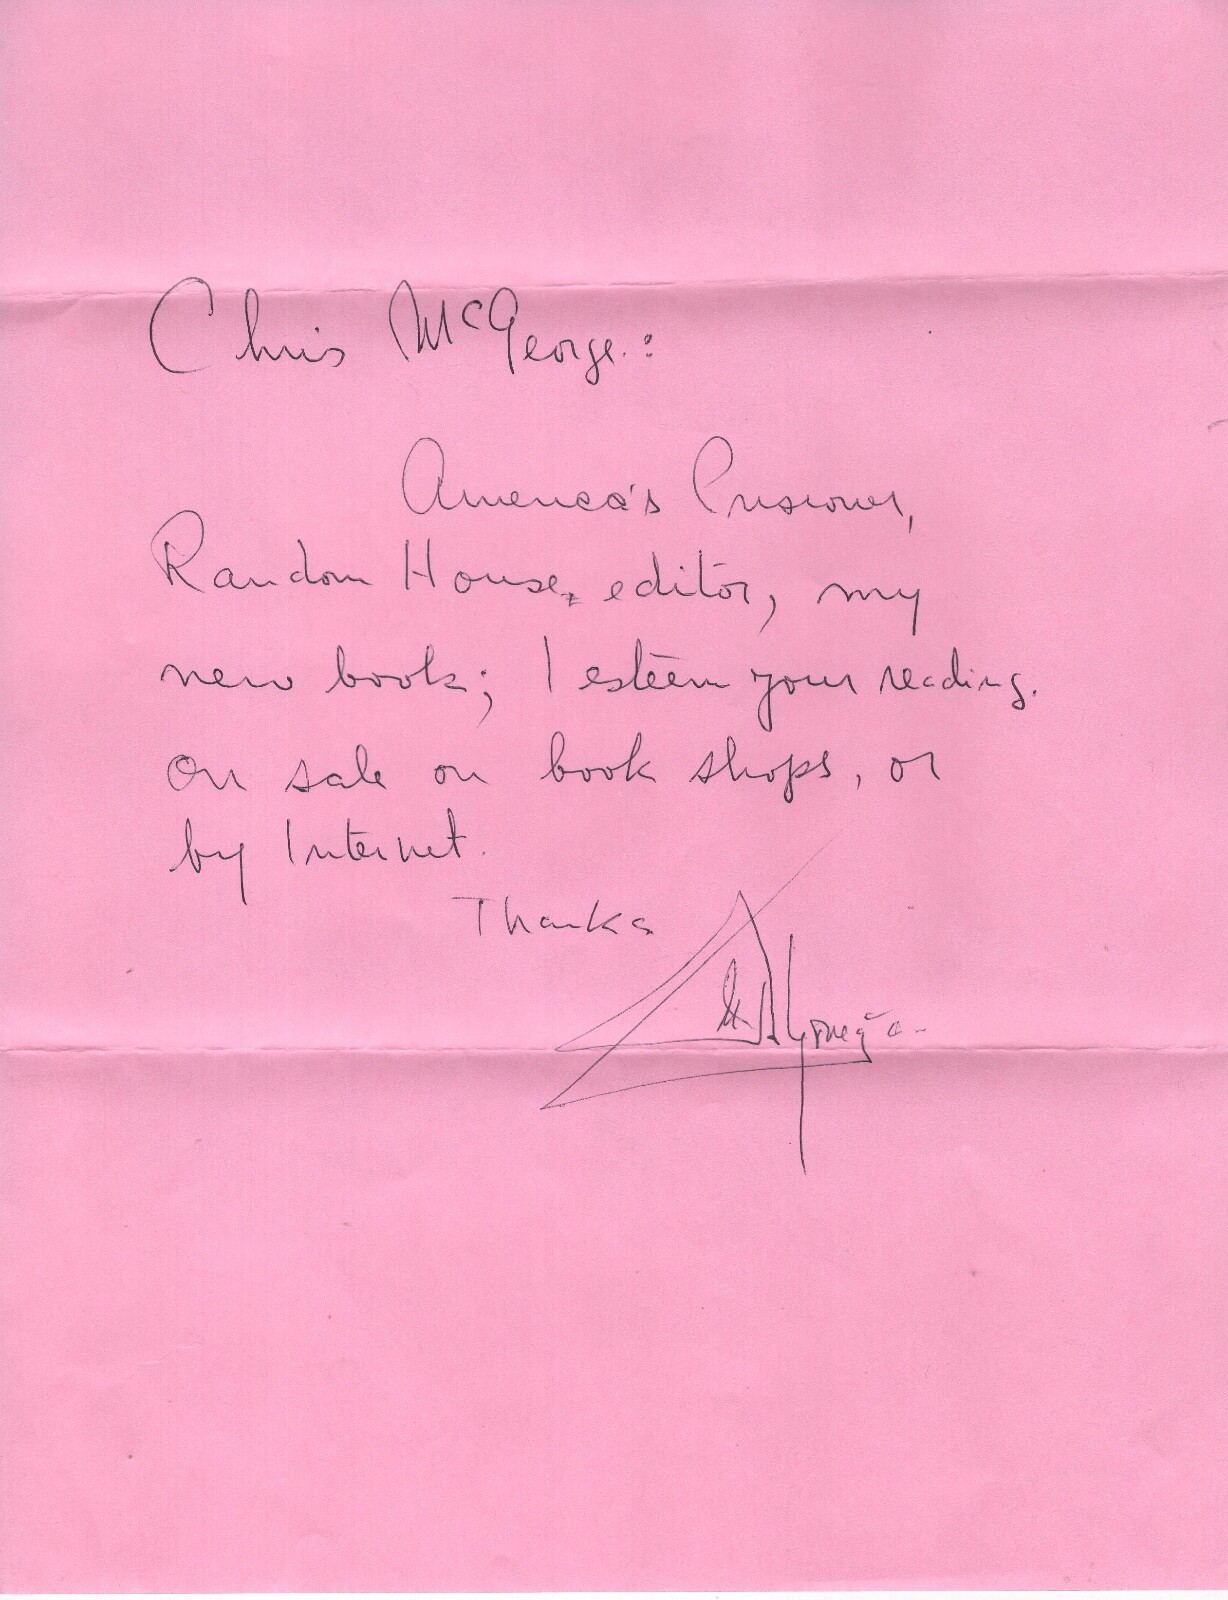 Chris McGeorge.:
America's Prisioner,
Random House, editor, my
new book; I esteem your reading.
On sale on book shops, or
by Internet.
Thanks